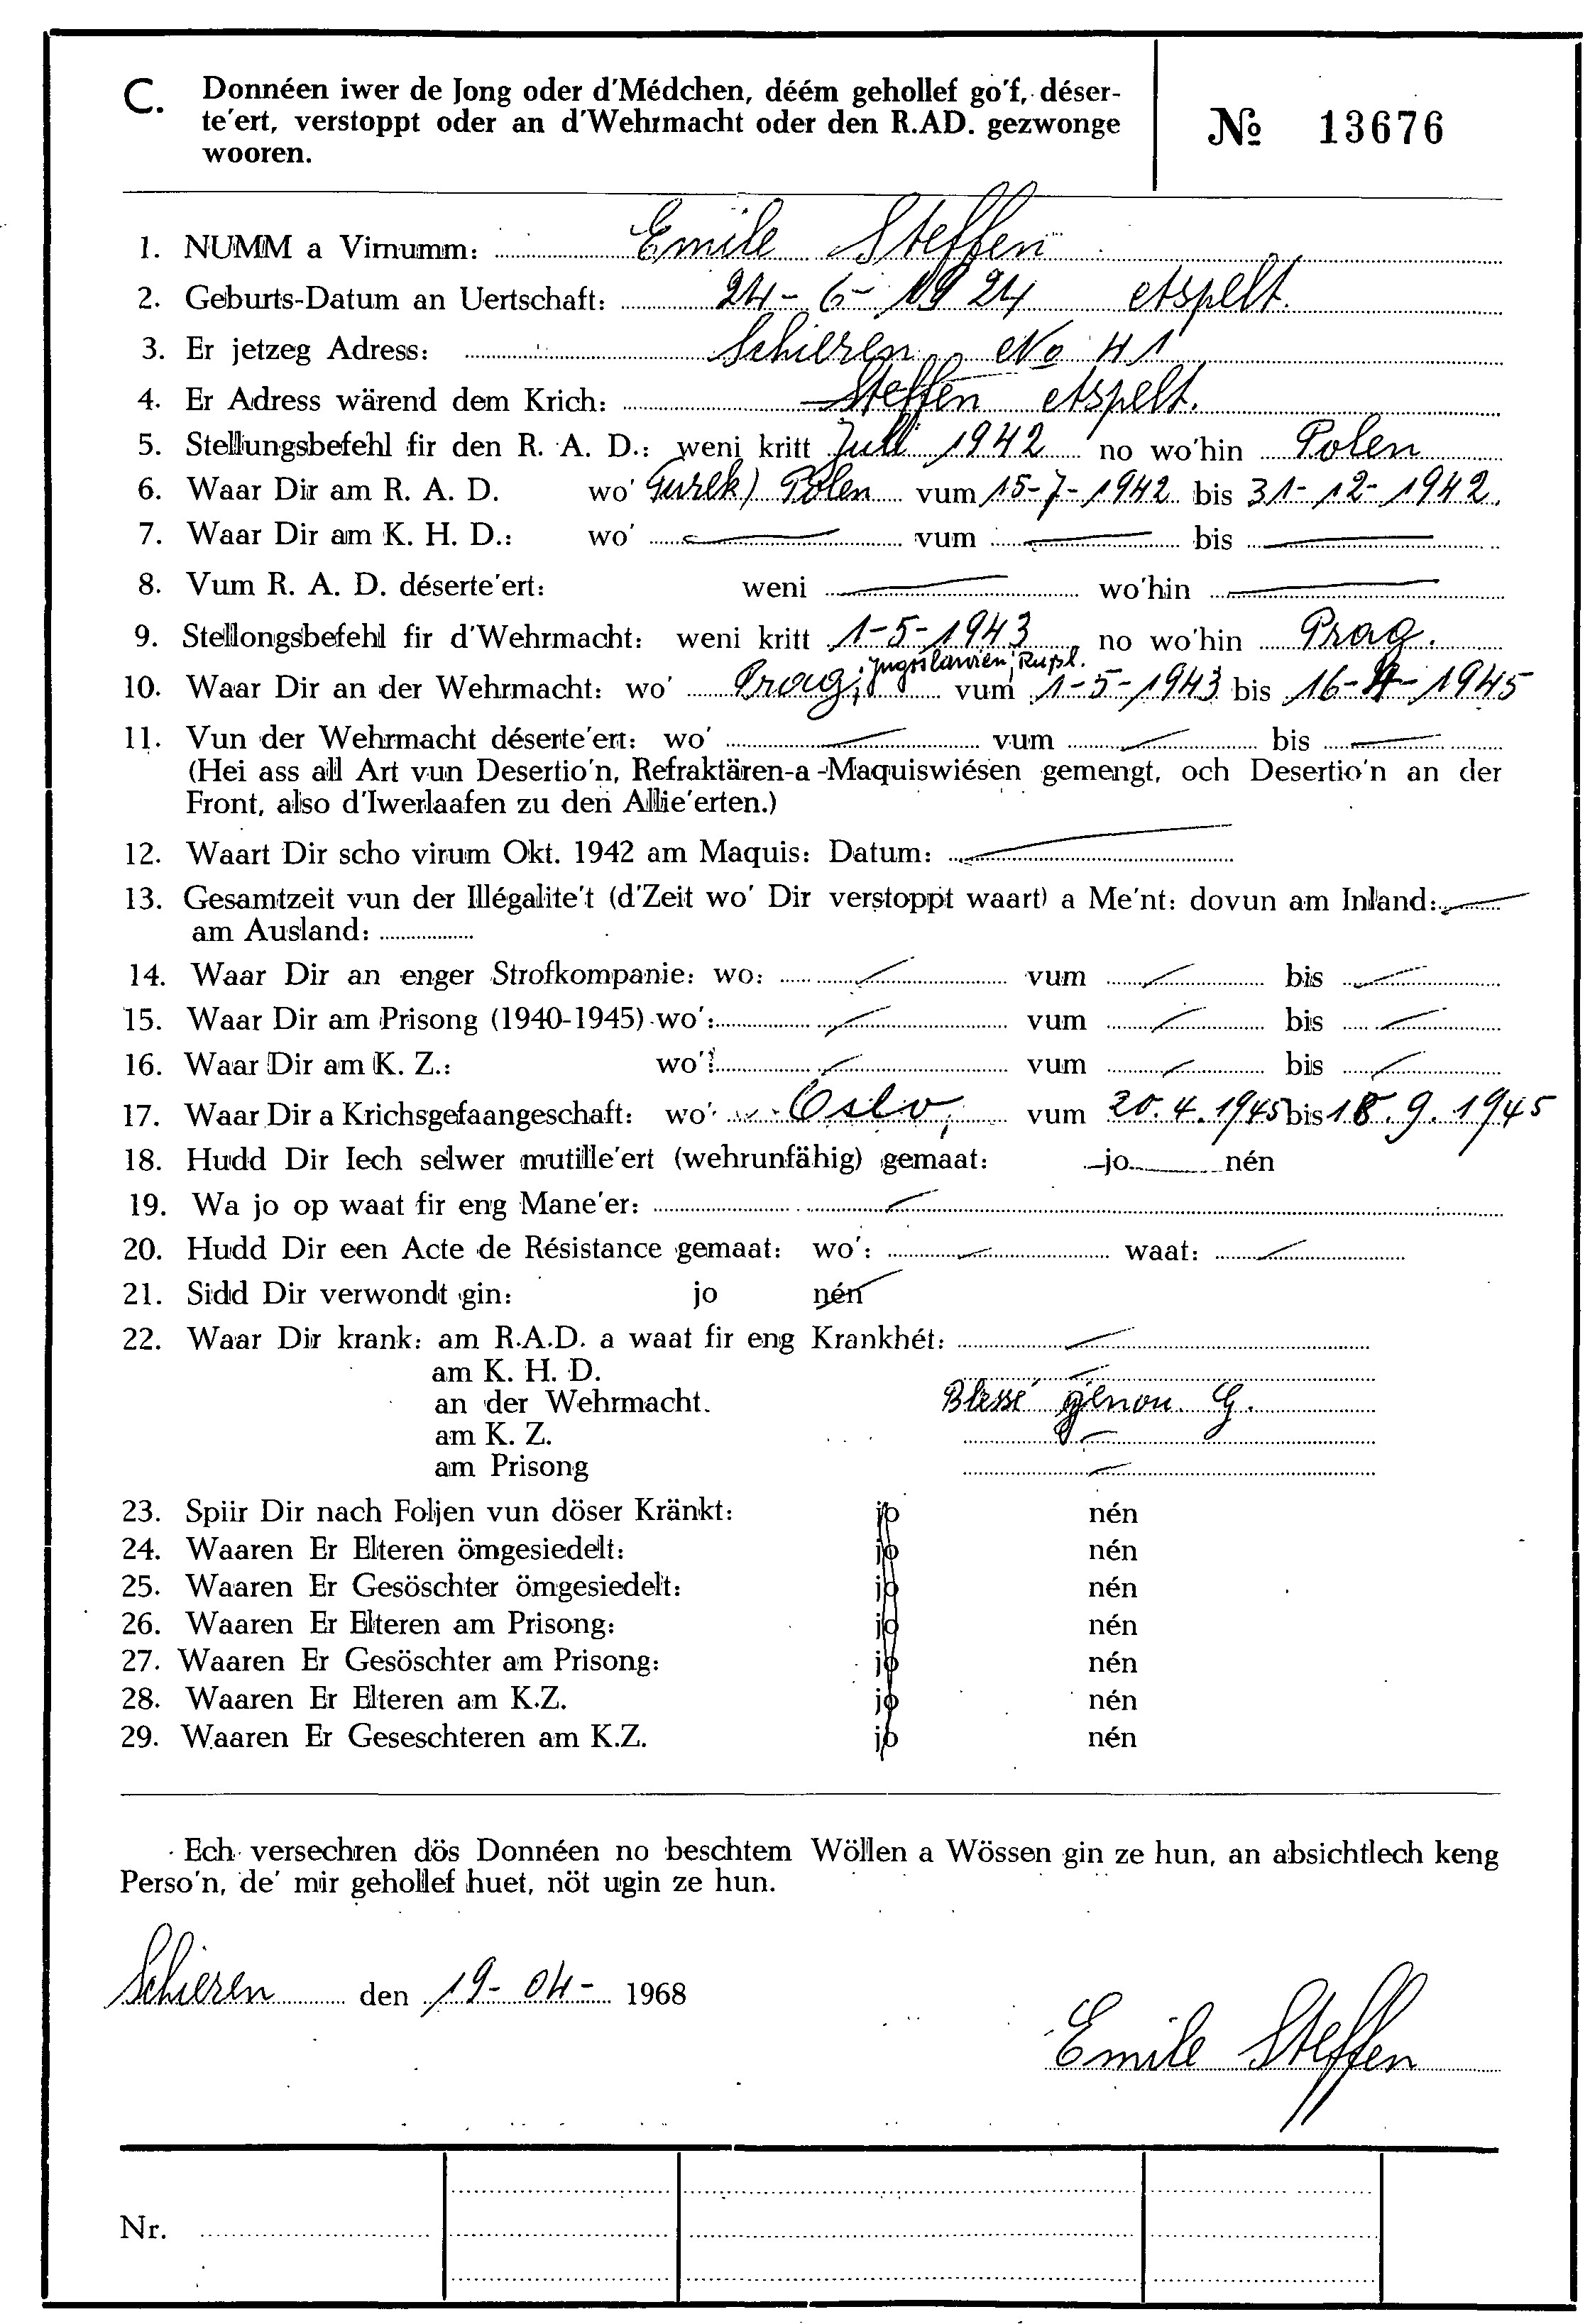 C. Donnéen iwer de Jong oder d'Médchen, déém gehollef go'f, déser-
te'ert, verstoppt oder an d'Wehrmacht oder den R.AD. gezwonge
wooren.
№ 13676
1. NUMM a Virnumm: Emile Steffen
2. Geburts-Datum an Uertschaft: 24-6-1924 Aspelt.
3. Er jetzeg Adress: Schieren No 41
4. Er Adress wärend dem Krich: Steffen Aspelt.
5. Stellungsbefehl fir den R. A. D.: weni kritt Juli 1942 no wo'hin Polen
6. Waar Dir am R. A. D. wo' Polen vum 15-7-1942 bis 31-12-1942.
7. Waar Dir am K. H. D.: wo' vum bis
8. Vum R. A. D. déserte'ert: weni wo'hin
9. Stellongsbefehl fir d'Wehrmacht: weni kritt 1-5-1943 no wo'hin Prag.
10. Waar Dir an der Wehrmacht: wo' Prag; Jugoslawien; Rußl. vum 1-5-1943 bis 16-4-1945
11. Vun der Wehrmacht déserte'ert: wo' vum bis
(Hei ass all Art vun Desertio'n, Refraktären-a-Maquiswiésen gemengt, och Desertio'n an der
Front, also d'Iwerlaafen zu den Allie'erten.)
12. Waart Dir scho virum Okt. 1942 am Maquis: Datum:
13. Gesamtzeit vun der Illégalite't (d'Zeit wo' Dir verstoppt waart) a Me'nt: dovun am Inland:
am Ausland:
14. Waar Dir an enger Strofkompanie: wo: vum bis
15. Waar Dir am Prisong (1940-1945) wo': vum bis
16. Waar Dir am K. Z.: wo': vum bis
17. Waar Dir a Krichsgefaangeschaft: wo' Oslo, vum 20.4.1945 bis 18.9.1945
18. Hudd Dir Iech selwer mutille'ert (wehrunfähig) gemaat: jo nén
19. Wa jo op waat fir eng Mane'er:
20. Hudd Dir een Acte de Résistance gemaat: wo': waat:
21. Sidd Dir verwondt gin: jo nén
22. Waar Dir krank: am R.A.D. a waat fir eng Krankhét:
am K. H. D.
an der Wehrmacht. Blessé genou G.
am K. Z.
am Prisong
23. Spiir Dir nach Foljen vun döser Kränkt: jo nén
24. Waaren Er Elteren ömgesiedelt: jo nén
25. Waaren Er Gesöschter ömgesiedelt: jo nén
26. Waaren Er Elteren am Prisong: jo nén
27. Waaren Er Gesöschter am Prisong: jo nén
28. Waaren Er Elteren am K.Z. jo nén
29. Waaren Er Geseschteren am K.Z. jo nén
Ech versechren dös Donnéen no beschtem Wöllen a Wössen gin ze hun, an absichtlech keng
Perso'n, de' mir gehollef huet, nöt ugin ze hun.
Schieren den 19-04- 1968
Emile Steffen
Nr.